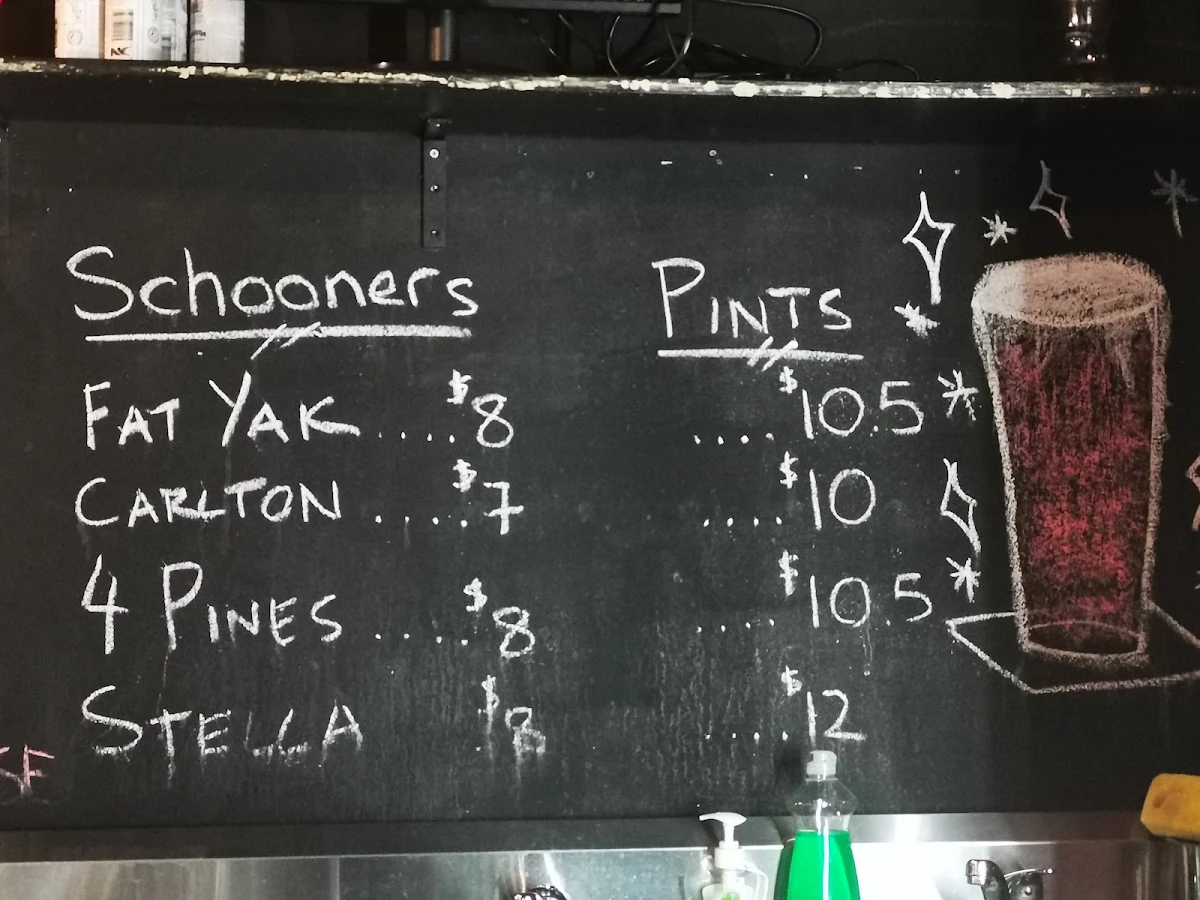 Schooners PINTS
FAT YAK ....$8 ....$10.5
CARLTON .....$7 .....$10
4 PINES .....$8 .....$10.5
STELLA $8 .....$12